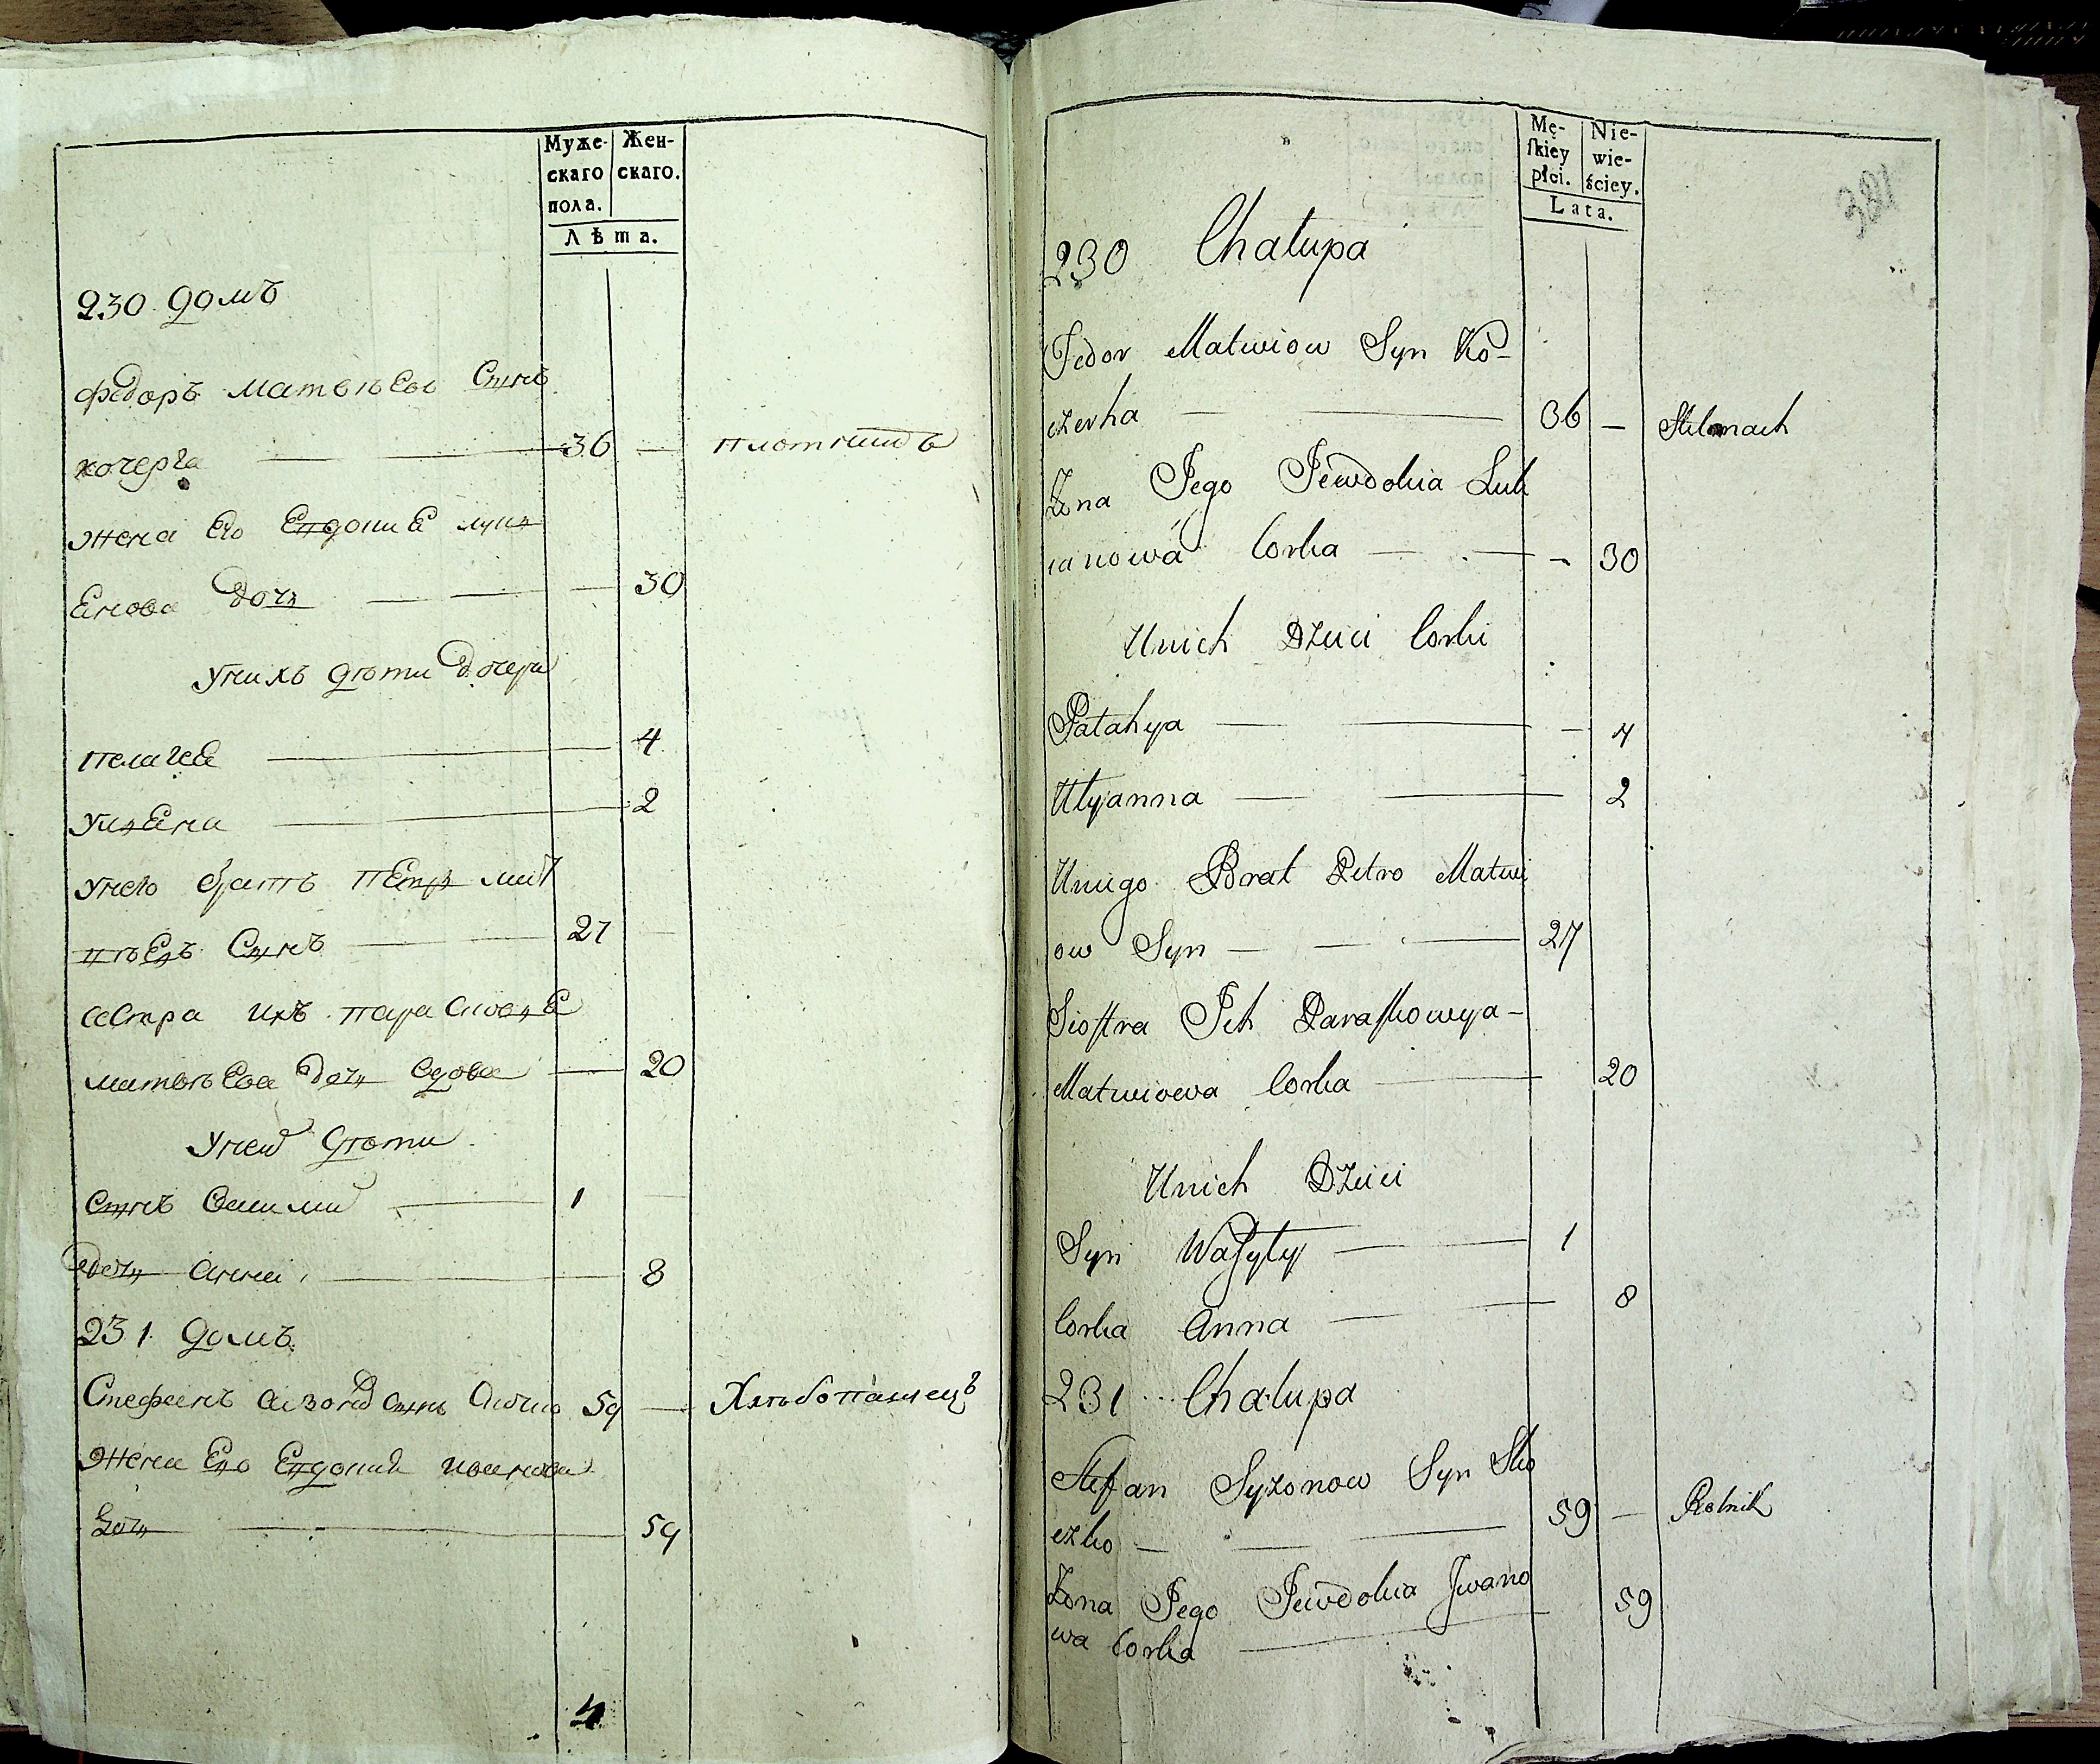 Муже-
скаго
пола.
Жен-
скаго.
Лѣта.
230 домъ
Федоръ Матвѣевъ Сынъ
кочерга 36 — плотникъ
жена Его Евдокиѣ лукъ
Енова дочь — 30
Унихъ дѣти дочери
пелагеѣ 4
улъЕна 2
унего братъ пЕтръ мат
вѣЕвъ Сынъ 27
сестра ихъ параскевѣ
матвѣева дочь вдова — 20
Уней дѣти
Сынъ василий 1
дочь анна 8
231 домъ
Стефанъ сизоновъ сынъ 59 — Хлѣбопашецъ
жена Его Евдокиѣ иванова
дочь 59
4
Mę-
ſkiey
płci.
Nie-
wie-
ściey.
Lata.
381
230 Chałupa
Fedor Matwiow Syn Ko-
czerha 36 — Stelmach
Żona Jego Jewdokia Luk
ianowa Corka — 30
Unich Dzieci Corki
Pałahya — 4
Ulyanna 2
Uniego Brat Petro Matwi
ow Syn 27
Sioſtra Ich Paraſkowya-
Matwiowa Corka 20
Unich Dzieci
Syn Waſyly 1
Corka Anna 8
231 Chałupa
Stefan Syzonow Syn Sko
czko 59 — Rolnik
Żona Jego Jewdokia Jwano
wa Corka 59